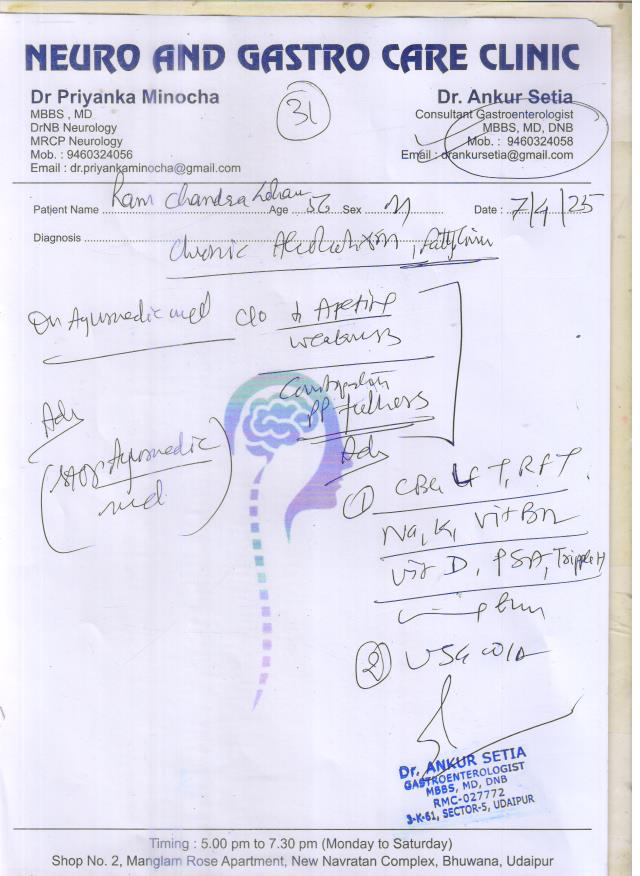 NEURO AND GASTRO CARE CLINIC
Dr Priyanka Minocha
MBBS , MD
DrNB Neurology
MRCP Neurology
Mob. : 9460324056
Email : dr.priyankaminocha@gmail.com
31
Dr. Ankur Setia
Consultant Gastroenterologist
MBBS, MD, DNB
Mob. : 9460324058
Email : drankursetia@gmail.com
Patient Name Ram Chandra Age 56 Sex M Date : 7/4/25
Diagnosis Chronic Alcoholism, fatty liver
On Ayurvedic med c/o ↓ Apetite
weakness
Constipation
PP fullness
Adv
(Stop Ayurvedic
med)
Adv
① CBC LFT, RFT
Na, K, Vit B12
Vit D, PSA, Tripple H
② USG W/A
Dr. ANKUR SETIA
GASTROENTEROLOGIST
MBBS, MD, DNB
RMC-027772
3-K-61, SECTOR-5, UDAIPUR
Timing : 5.00 pm to 7.30 pm (Monday to Saturday)
Shop No. 2, Manglam Rose Apartment, New Navratan Complex, Bhuwana, Udaipur